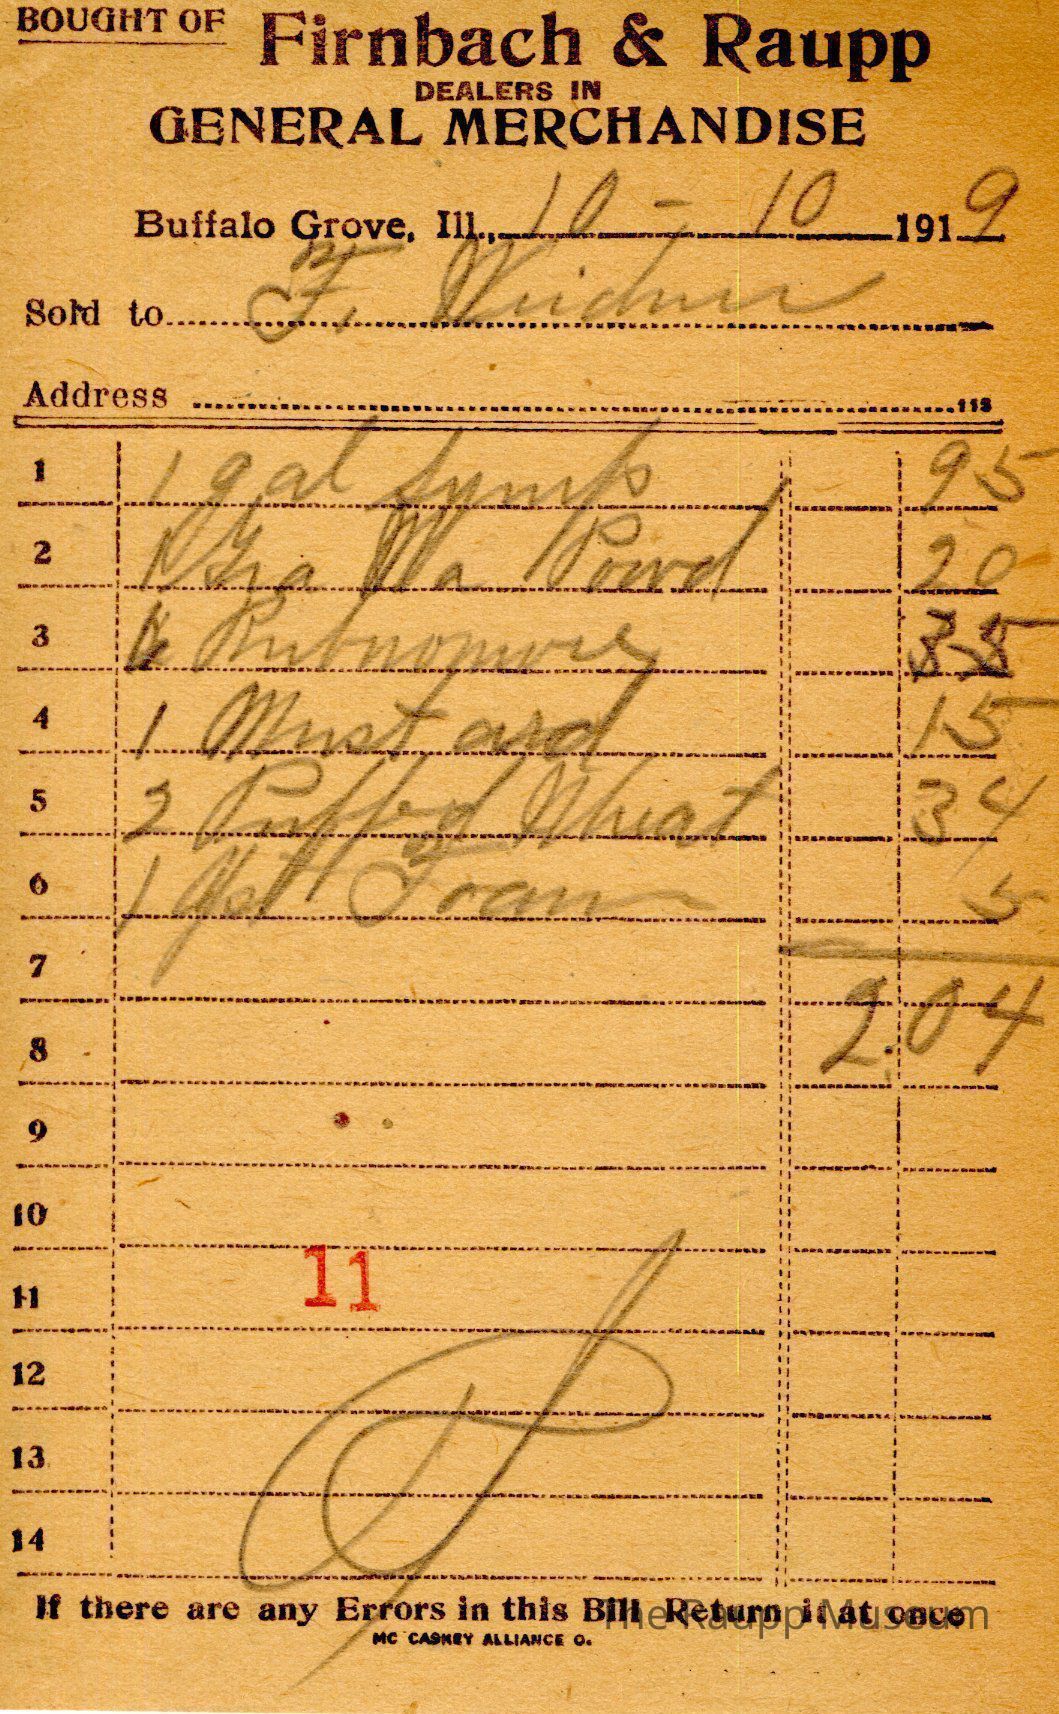 BOUGHT OF Firnbach & Raupp
DEALERS IN
GENERAL MERCHANDISE
Buffalo Grove, Ill., 10 - 10 1919
Sold to F. Weidner
Address 113
1 1 gal Syrup 95
2 1 Gra Ma Powd 20
3 6 Rubnomore 35
4 1 Mustard 15
5 2 Puffed Wheat 34
6 1 Yeast Foam 5
7
8 2.04
9
10
11 11
12
13
14
If there are any Errors in this Bill Return it at once
MC CASKEY ALLIANCE O.
The Raupp Museum